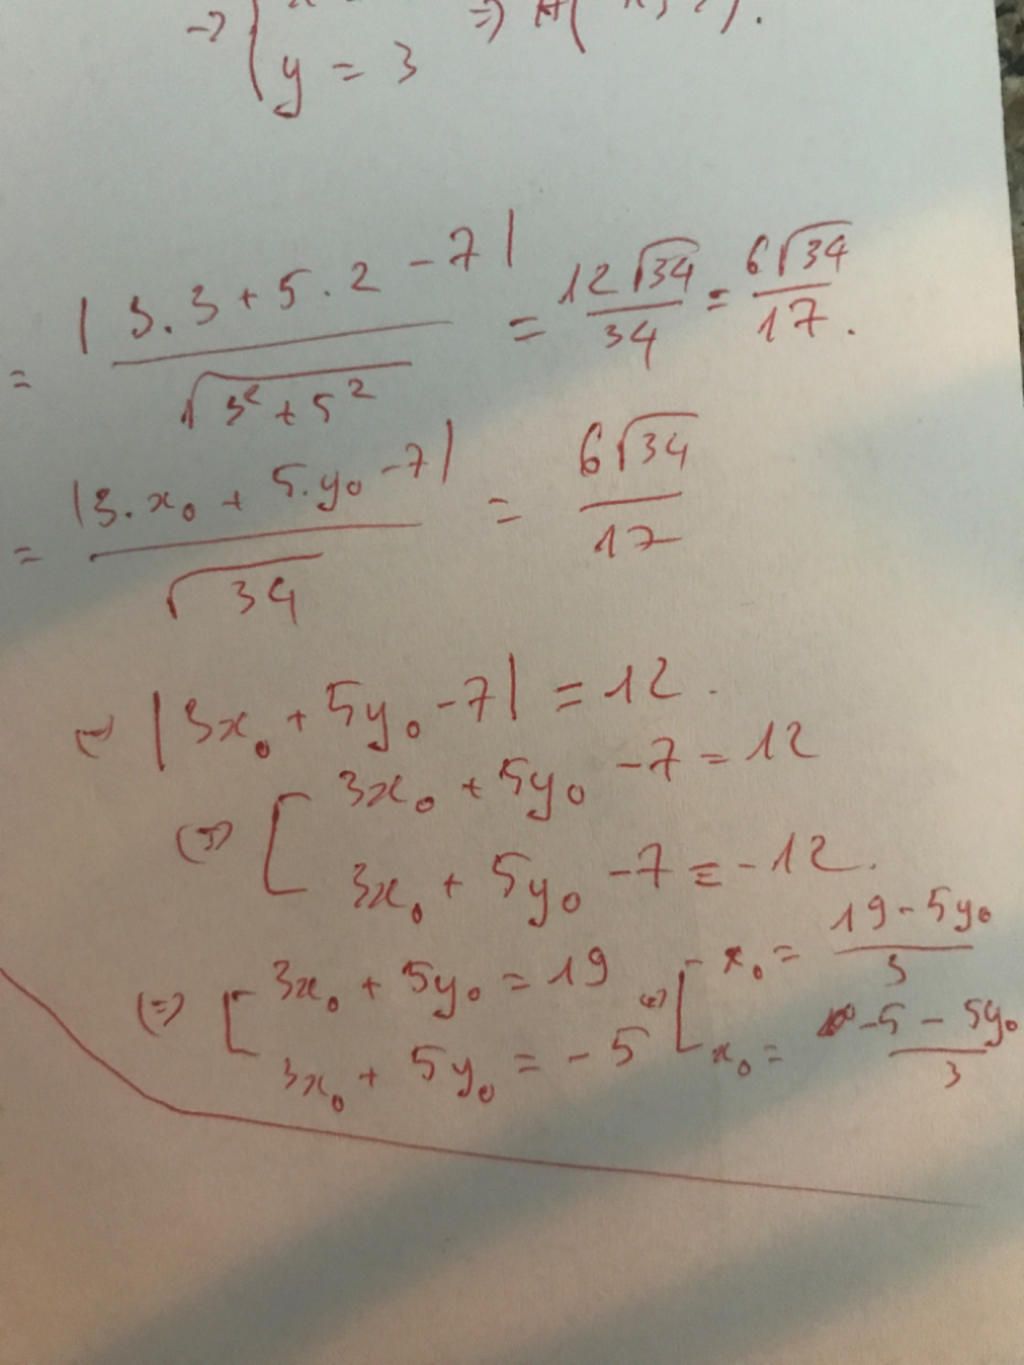 y = 3
= |3.3 + 5.2 - 7| / √(3² + 5²) = 12√34 / 34 = 6√34 / 17.
= |3.x₀ + 5.y₀ - 7| / √34 = 6√34 / 17
|3x₀ + 5y₀ - 7| = 12.
(=) [ 3x₀ + 5y₀ - 7 = 12
3x₀ + 5y₀ - 7 = -12.
(=) [ 3x₀ + 5y₀ = 19 (=) [ x₀ = 19 - 5y₀ / 3
3x₀ + 5y₀ = -5 x₀ = -5 - 5y₀ / 3